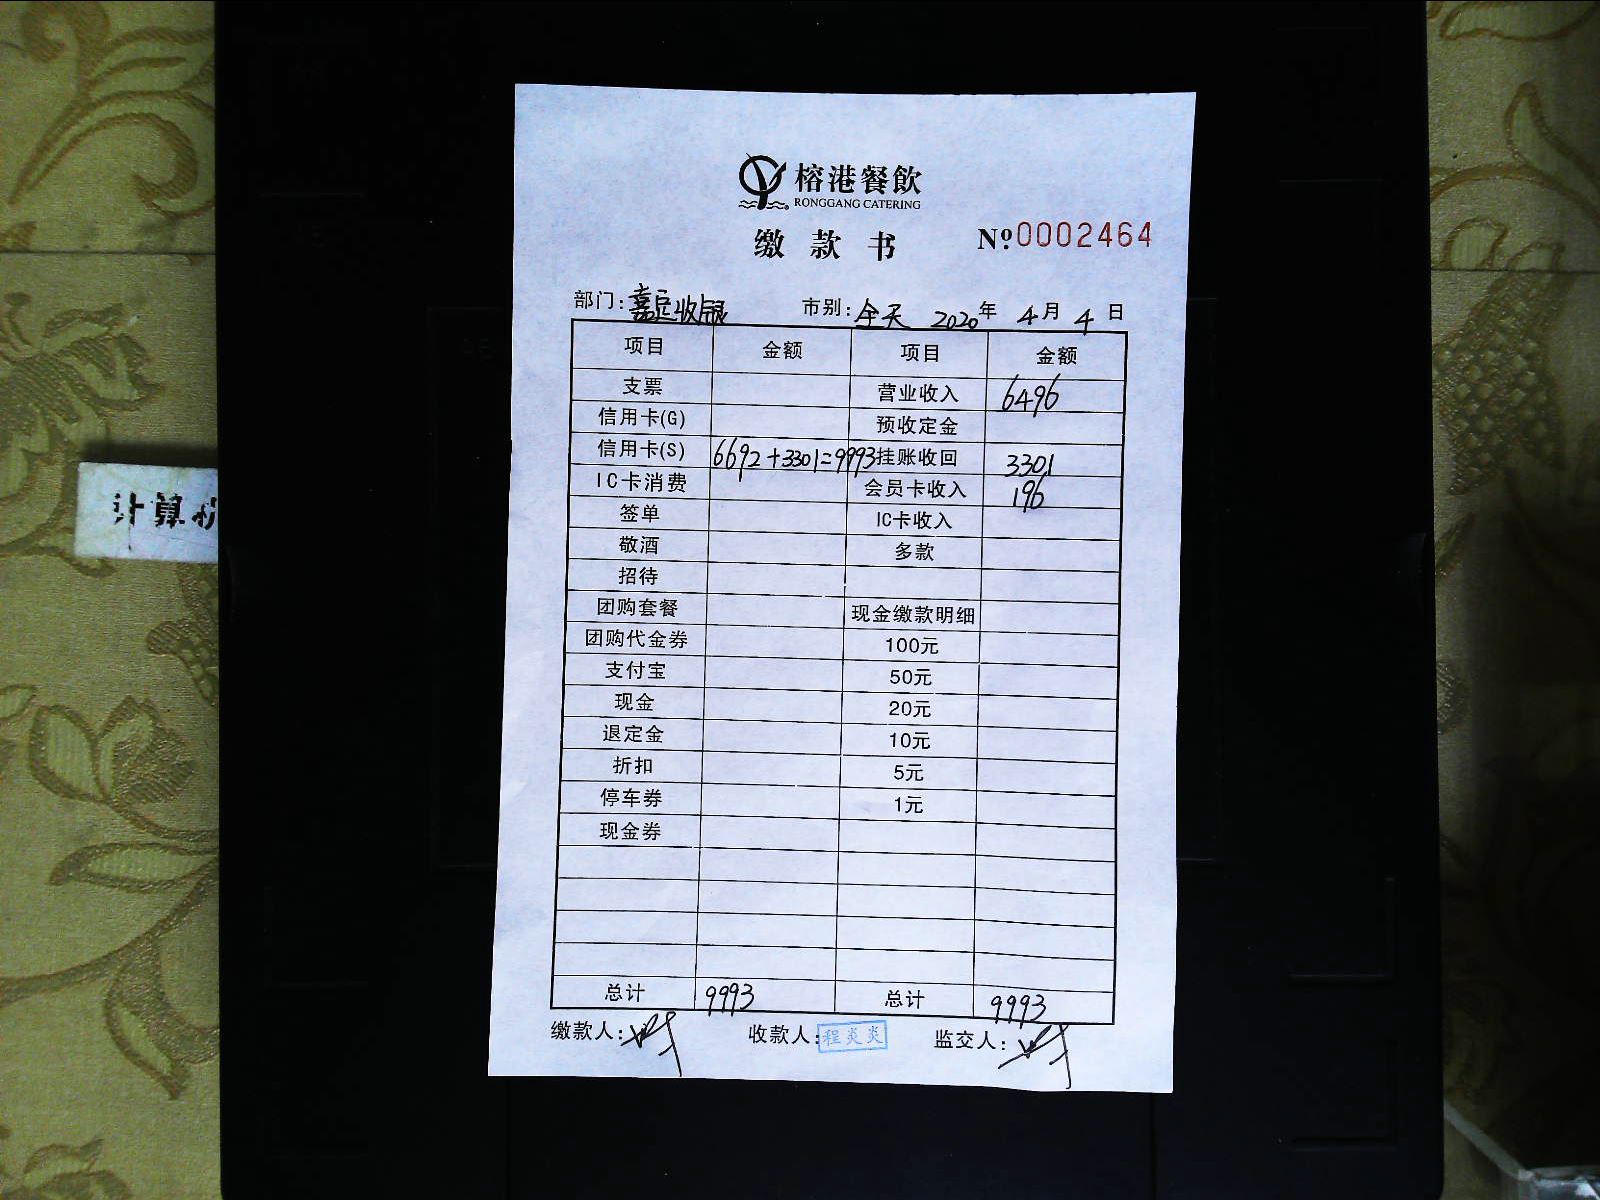 榕港餐飲
RONGGANG CATERING
缴款书 №0002464
部门: 收银 市别: 全天 2020年 4月 4日
项目 金额 项目 金额
支票 营业收入 6496
信用卡(G) 预收定金
信用卡(S) 6692+3301=9993 挂账收回 3301
IC卡消费 会员卡收入 196
签单 IC卡收入
敬酒 多款
招待
团购套餐 现金缴款明细
团购代金券 100元
支付宝 50元
现金 20元
退定金 10元
折扣 5元
停车券 1元
现金券
总计 9993 总计 9993
缴款人: 收款人: 程炎炎 监交人:
计算机